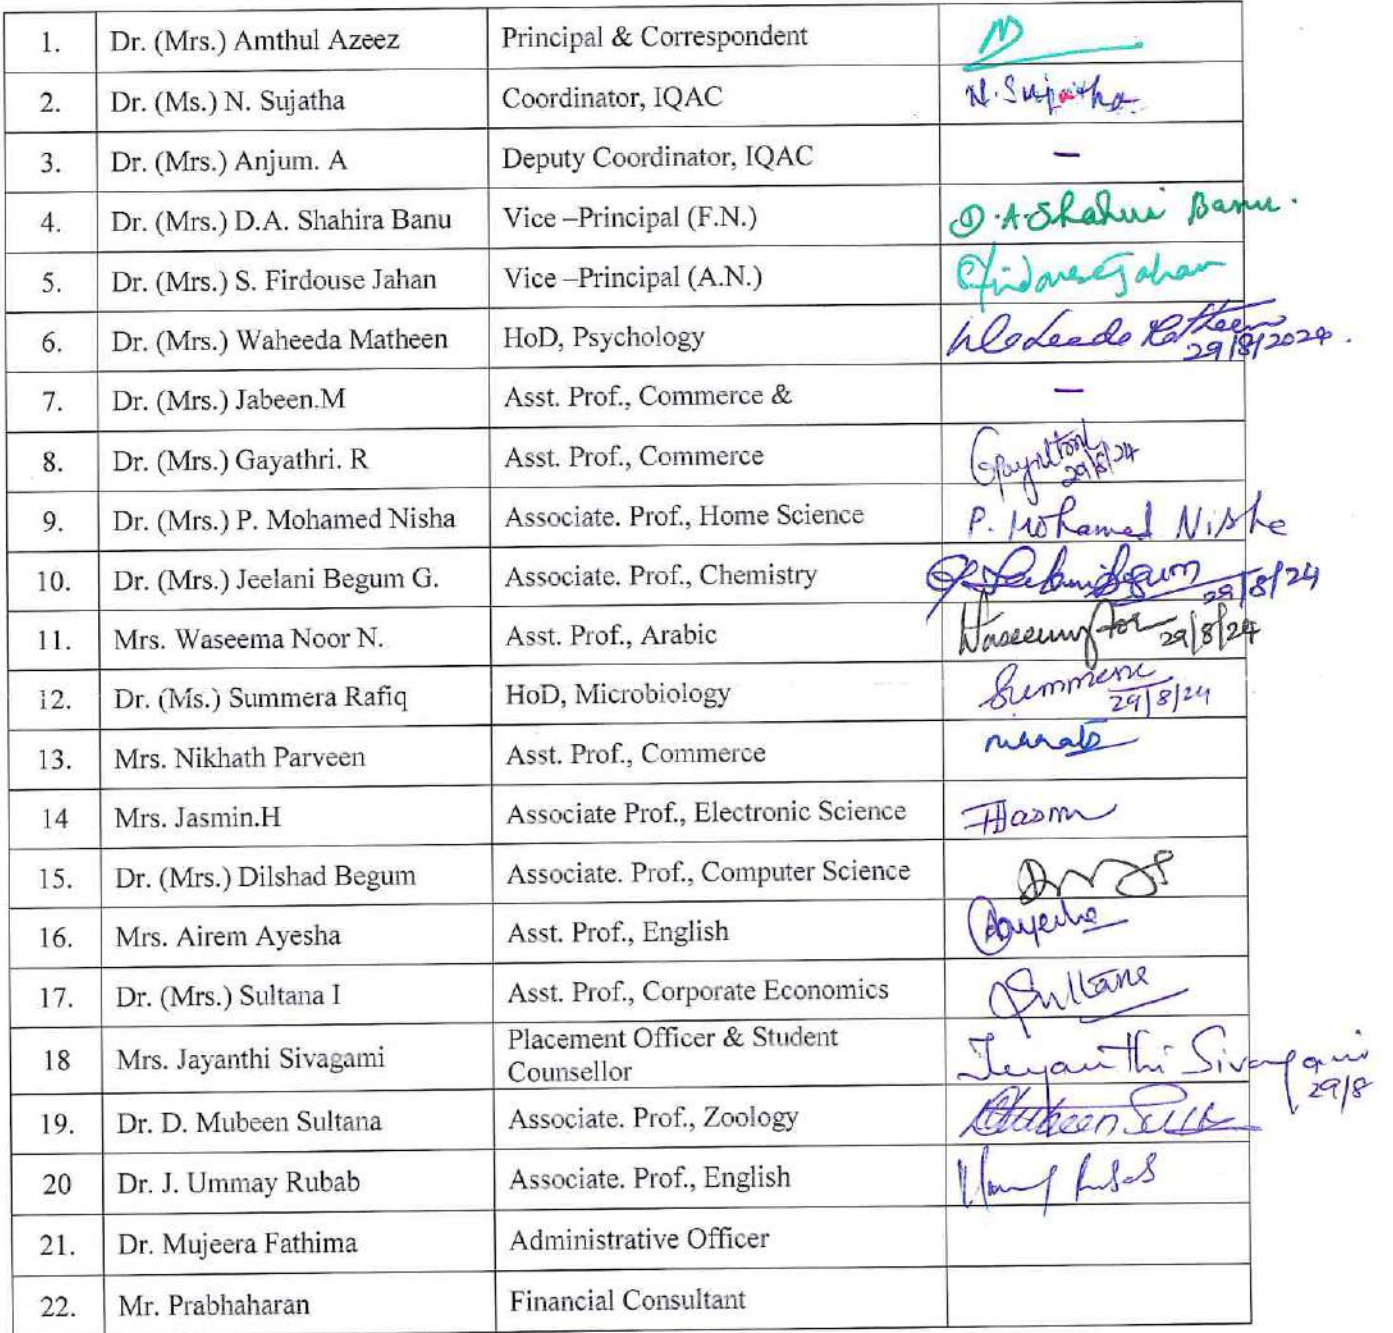 1. Dr. (Mrs.) Amthul Azeez Principal & Correspondent
2. Dr. (Ms.) N. Sujatha Coordinator, IQAC N. Sujatha
3. Dr. (Mrs.) Anjum. A Deputy Coordinator, IQAC –
4. Dr. (Mrs.) D.A. Shahira Banu Vice –Principal (F.N.) D.A. Shahira Banu.
5. Dr. (Mrs.) S. Firdouse Jahan Vice –Principal (A.N.) Firdouse Jahan
6. Dr. (Mrs.) Waheeda Matheen HoD, Psychology Waheeda Matheen
29/8/2024.
7. Dr. (Mrs.) Jabeen.M Asst. Prof., Commerce & –
8. Dr. (Mrs.) Gayathri. R Asst. Prof., Commerce Gayathri
29/8/24
9. Dr. (Mrs.) P. Mohamed Nisha Associate. Prof., Home Science P. Mohamed Nisha
10. Dr. (Mrs.) Jeelani Begum G. Associate. Prof., Chemistry G. Jeelani Begum
29/8/24
11. Mrs. Waseema Noor N. Asst. Prof., Arabic 29/8/24
12. Dr. (Ms.) Summera Rafiq HoD, Microbiology Summera
29/8/24
13. Mrs. Nikhath Parveen Asst. Prof., Commerce
14 Mrs. Jasmin.H Associate Prof., Electronic Science
15. Dr. (Mrs.) Dilshad Begum Associate. Prof., Computer Science
16. Mrs. Airem Ayesha Asst. Prof., English Ayesha
17. Dr. (Mrs.) Sultana I Asst. Prof., Corporate Economics Sultana
18 Mrs. Jayanthi Sivagami Placement Officer & Student
Counsellor Jeyanthi Sivagami
29/8
19. Dr. D. Mubeen Sultana Associate. Prof., Zoology
20 Dr. J. Ummay Rubab Associate. Prof., English
21. Dr. Mujeera Fathima Administrative Officer
22. Mr. Prabhaharan Financial Consultant